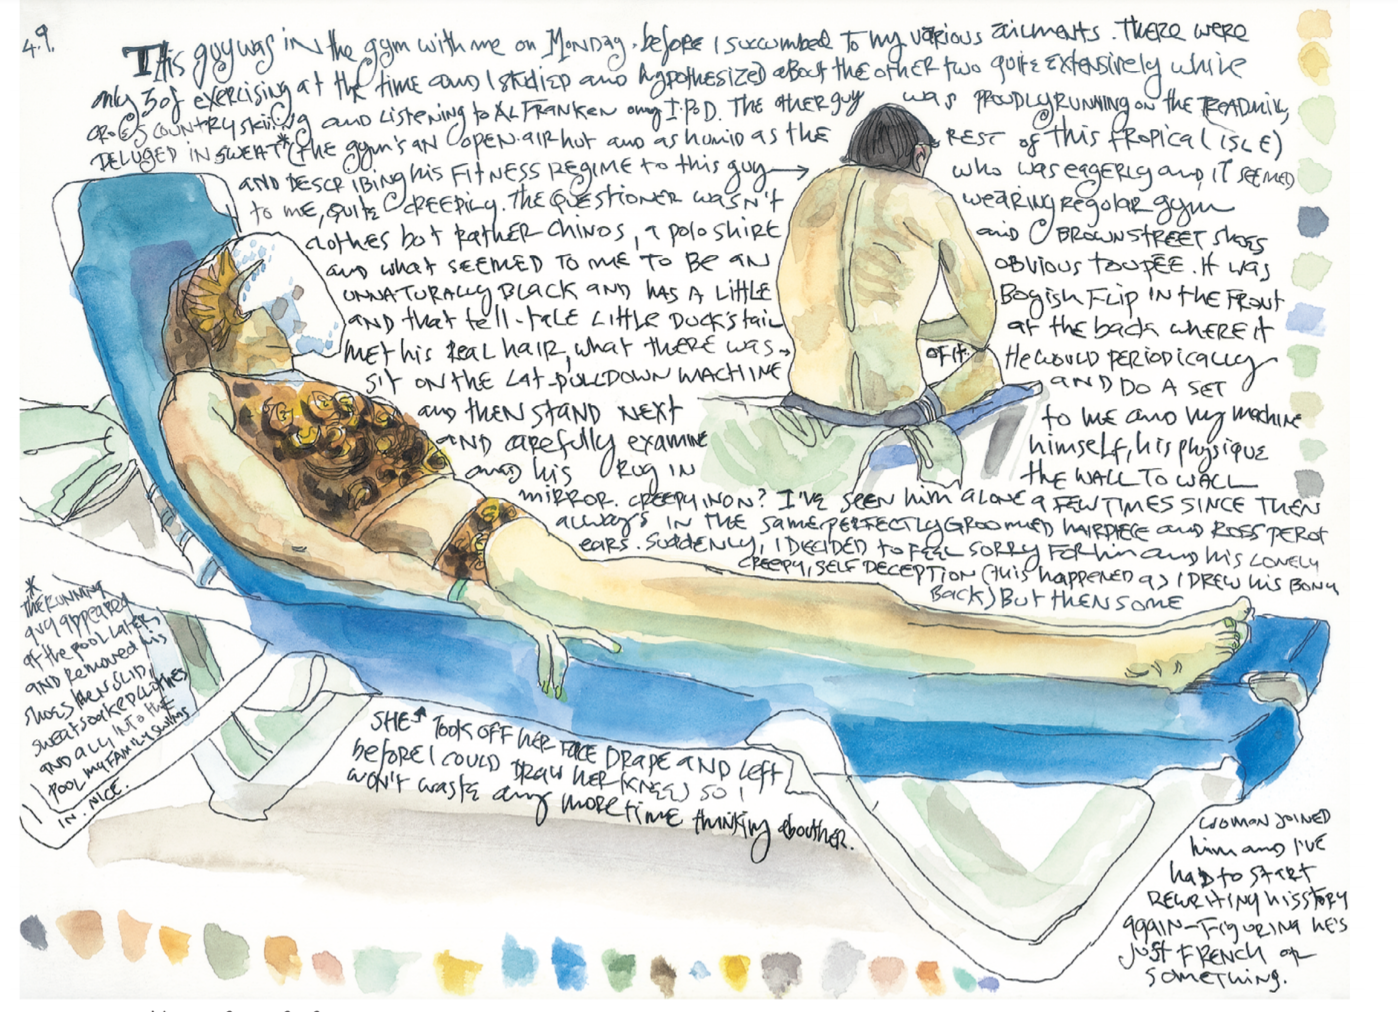 4.9.
This guy was in the gym with me on Monday, before I succumbed to my various ailments. There were
only 3 of exercising at the time and I studied and hypothesized about the other two quite extensively while
cross country skiing and listening to AL FRANKEN on my I.POD. The other guy was proudly running on the treadmill,
DELUGED IN SWEAT* (the gym's an open-air hut and as humid as the REST of this tropical isle)
AND DESCRIBING his FITNESS REGIME to this guy → who was eagerly and, it seemed
to me, quite creepily. The questioner wasn't wearing regular gym
clothes but rather chinos, a polo shirt and brown street shoes
and what seemed to me to be an obvious toupée. It was
unnaturally black and has a little boyish flip in the front
AND that tell-tale little duck's tail at the back where it
met his real hair, what there was → of it. He would periodically
sit on the lat-pulldown machine and do a set
and then stand next to me and my machine
and carefully examine himself, his physique
and his rug in the wall to wall
mirror. creepy, non? I've seen him alone a few times since then
always in the same perfectly groomed hairpiece and Ross Perot
ears. Suddenly, I decided to feel sorry for him and his lonely
creepy, self deception (this happened as I drew his bony
back) But then some
woman joined
him and I've
had to start
rewriting his story
again – figuring he's
just French or
something.
*
The running
guy appeared
at the pool later
and removed his
shoes then slid
sweatsoaked clothes
and all into the
pool my family swims
in. Nice.
SHE↑ took off her face drape and left
before I could draw her knees so I
won't waste any more time thinking about her.